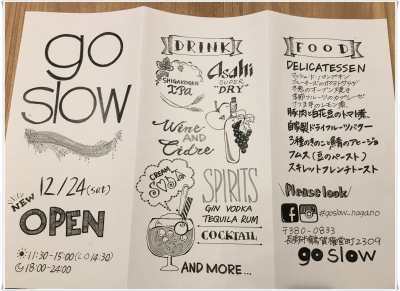 go
slow
12/24(sat)
NEW
OPEN
11:30-15:00(LO14:30)
18:00-24:00
DRINK
SHIGAKOGEN
IPA
Asahi
SUPER
"DRY"
Wine
AND
Cidre
CREAM
SODA
SPIRITS
GIN VODKA
TEQUILA RUM
COCKTAIL
AND MORE...
FOOD
DELICATESSEN
豚肉と白花豆のトマト煮
自家製ドライフルーツバター
3種のきのこと鶏肉のアヒージョ
フムス(豆のペースト)
スキレットフレンチトースト
Please look
#goslow_nagano
〒380-0833
2309
go slow